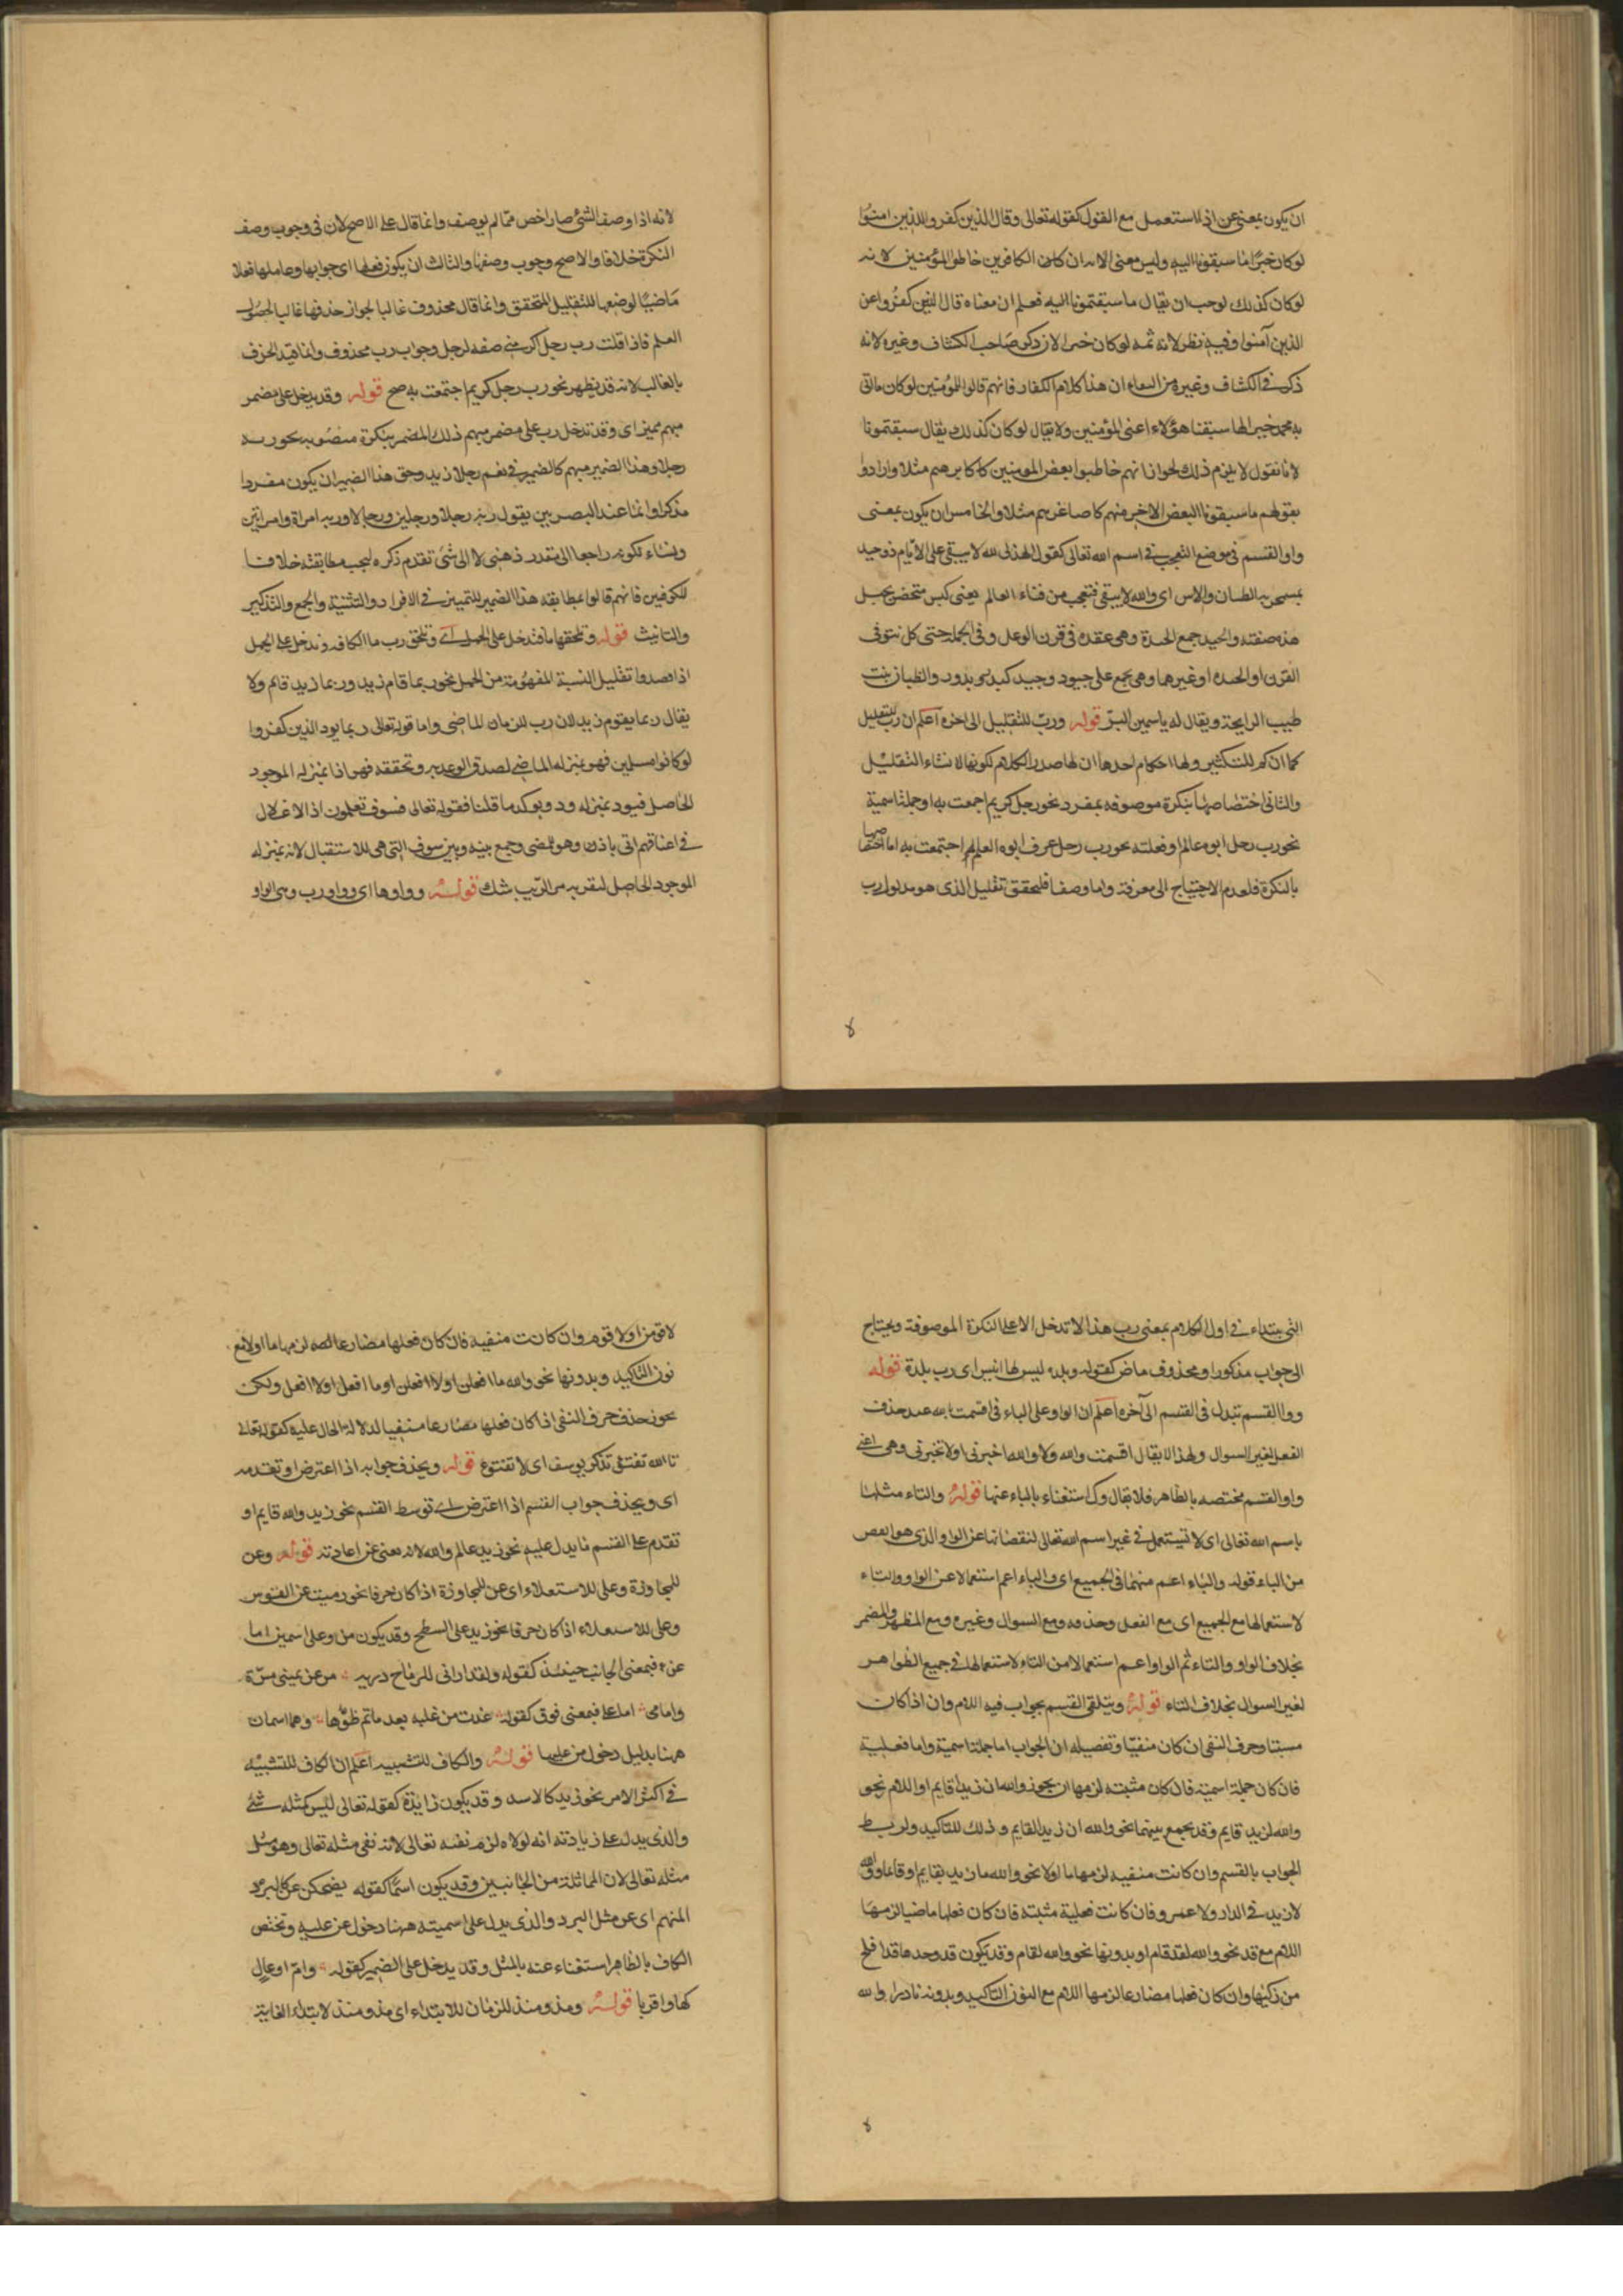 ان يكون بمعنى عن اذا استعمل مع القول كقوله تعالى وقال الذين كفروا للذين امنوا
لو كان خيرًا ما سبقونا اليه وليس معنى الاية ان كان الكافرين خاطبوا المؤمنين لانه
لو كان كذلك لوجب ان يقال ما سبقتمونا اليه فعلم ان معناه قال الذين كفروا عن
الذين آمنوا وفيه نظر لانه ثمه لو كان خيرا لان ذكر صاحب الكشاف وغيره لانه
ذكر في الكشاف وغيره من ان هذا كلام الكفار فانهم قالوا للمؤمنين لو كان ما اتى
به محمد خيرا لما سبقنا هؤلاء اعنى المؤمنين ولا يقال لو كان كذلك يقال سبقتمونا
لانا نقول لا يلزم ذلك لجواز انهم خاطبوا بعض المومنين كاكابرهم مثلا وارادوا
بقولهم ما سبقونا البعض الاخر منهم كاصاغرهم مثلا والخامس ان يكون بمعنى
واو القسم في موضع التعجب في اسم الله تعالى كقول الهذلى لله لا يبقى على الايام ذو حيد
بمشمخر به الظيان والاس اى والله لا يبقى فتعجب من فناء العالم يعنى كبس متحضر بجبل
هذه صفته والحيد جمع الحيدة وهى عقدة في قرن الوعل وفي الجملة حتى كل نتو في
القرن او الحيده او غيرها وهى تجمع على حيود وحيد كبدرة بدور والظيان نبت
طيب الرايحة ويقال له ياسمين البر قوله ورب للتقليل الى اخره اعلم ان رب للتقليل
كما ان كم للتكثير ولها احكام احدها ان لها صدر الكلام لكونها لانشاء التقليل
والثانى اختصاصها بنكرة موصوفة بمفرد نحو رب رجل كريم اجمعت به او جملة اسمية
نحو رب رجل ابوه عالم او فعلية نحو رب رجل عرف ابوه العلم اجتمعت به اما اختصاصها
بالنكرة فلعدم الاحتياج الى معرفة واما وصفها فليحقق تقليل الذى هو مدلول رب
لانه اذا وصف الشئ صار اخص ممّا لم يوصف وانما قال على الاصح لان في وجوب وصف
النكرة خلافا والاصح وجوب وصفها والثالث ان يكون فعلها اى جوابها وعاملها فعلا
ماضيًا لوضعها للتقليل المتحقق وانما قال محذوف غالبا لجواز حذفها غالبا لحصول
العلم فاذا قلت رب رجل اكرمنى صفه لرجل وجواب رب محذوف وانما قيد الحذف
بالغالب لانه قد يظهر نحو رب رجل كريم اجتمعت به صح قوله وقد يدخل على مضمر
مبهم مميز اى وقد تدخل رب على مضمر مبهم ذلك المضمر بنكرة منصوبه نحو ربه
رجلا وهذا الضمير مبهم كالضمير في نعم رجلا زيد وحق هذا الضمير ان يكون مفردا
مذكرا وانما عند البصريين يقول ربه رجلا ورجلين ورجالا وربه امراة وامراتين
ونساء لكونه راجعا الى مقدر ذهنى لا الى شئ تقدم ذكره ليجب مطابقته خلافا
للكوفين فانهم قالوا بمطابقة هذا الضمير للتمييز في الافراد والتثنية والجمع والتذكير
والتانيث قوله وتلحقها ما فتدخل على الجمل اى وتلحق رب ما الكافه فتدخل على الجمل
اذا قصدوا تقليل النسبة المفهومة من الجمل نحو ربما قام زيد وربما زيد قائم ولا
يقال ربما يقوم زيد لان رب للزمان الماضى واما قوله تعالى ربما يود الذين كفروا
لو كانوا مسلمين فهو بمنزله الماضى لصدق الوعد به وتحققه فهو اذا بمنزله الموجود
الحاصل فيود بمنزله ود ويوكد ما قلنا قوله تعالى فسوف تعلمون اذ الاغلال
في اعناقهم اتى باذ وهو لمضى وجمع بينه وبين سوف التى هى للاستقبال لانه بمنزله
الموجود الحاصل لتقربه من الريب شك قوله وواوها اى وواو رب وهى الواو
التى يبتداء في اول الكلام بمعنى رب هذا لا تدخل الا على النكرة الموصوفة ويحتاج
الى جواب مذكور او محذوف ماض كقوله وبلدة ليس لها انيس اى رب بلدة قوله
وواو القسم تبدل في القسم الى آخره اعلم ان الواو على الباء في اقسمت بالله عند حذف
الفعل لغير السوال ولهذا لا يقال اقسمت والله ولا والله اخبرنى او لا تخبرنى وهى اعنى
واو القسم مختصه بالظاهر فلا يقال وك استغناء بالباء عنها قوله والتاء مثلها
باسم الله تعالى اى لا تستعمل في غير اسم الله تعالى لنقصانها عن الواو الذى هو انقص
من الباء قوله والباء اعم منهما في الجميع اى والباء اعم استعمالا عن الواو والتاء
لاستعمالها مع الجميع اى مع الفعل وحذفه ومع السوال وغيره ومع المظهر والمضمر
بخلاف الواو والتاء ثم الواو اعم استعمالا من التاء لاستعمالها في جميع الظواهر
لغير السوال بخلاف التاء قوله ويتلقى القسم بجواب فيه اللام وان اذا كان
مثبتا وحرف النفى ان كان منفيا وتفصيله ان الجواب اما جملة اسمية واما فعلية
فان كان جملة اسمية فان كان مثبته لزمها ان نحو والله ان زيدا قايم او اللام نحو
والله لزيد قايم وقد يجمع بينهما نحو والله ان زيدا لقايم وذلك للتاكيد ولربط
الجواب بالقسم وان كانت منفيه لزمها ما او لا نحو والله ما زيد بقايم او قاعد او والله
لا زيد في الدار ولا عمرو فان كانت فعلية مثبته فان كان فعلها ماضيا لزمها
اللام مع قد نحو والله لقد قام او بدونها نحو والله لقام وقد يكون قد وحدها قد افلح
من زكيها وان كان فعلها مضارعا لزمها اللام مع النون التاكيد وبدونه نادرا والله
لاقومن او لاقوم وان كانت منفيه فان كان فعلها مضارعا لزمها ما او لا مع
نون التاكيد وبدونها نحو والله ما افعلن او لا افعلن او ما افعل او لا افعل ولكن
يجوز حذف حرف النفى اذا كان فعلها مضارعا منفيا لدلالة الحال عليه كقوله تعالى
تالله تفتؤ تذكر يوسف اى لا تفتؤ قوله ويحذف جوابه اذا اعترض او تقدمه
اى ويحذف جواب القسم اذا اعترض اى توسط القسم نحو زيد والله قايم او
تقدم على القسم ما يدل عليه نحو زيد عالم والله لانه يغنى عن اعادته قوله وعن
للمجاوزة وعلى للاستعلاء اى عن للمجاوزة اذا كان حرفا نحو رميت عن القوس
وعلى للاستعلاء اذا كان حرفا نحو زيد على السطح وقد يكون من وعلى اسمين اما
عن فبمعنى الجانب حينئذ كقوله ولقد ارانى للرماح دريه من عن يمينى مرّة
وامامى اما على فبمعنى فوق كقوله غدت من عليه بعد ما تم ظموها وهما اسمان
ههنا بدليل دخول من عليها قوله والكاف للتشبيه اعلم ان الكاف للتشبيه
في اكثر الامر نحو زيد كالاسد وقد يكون زايدة كقوله تعالى ليس كمثله شئ
والذى يدل على زيادته انه لولاه لزم نفسه تعالى لانه نفى مثله تعالى وهو مثل
مثله تعالى لان المماثلة من الجانبين وقد يكون اسمًا كقوله يضحكن عن كالبرد
المنهم اى عن مثل البرد والذى يدل على اسميته ههنا دخول عن عليه وتختص
الكاف بالظاهر استغناء عنه بالمثل وقد يدخل على الضمير كقوله وام اوعال
كها او اقربا قوله ومذ ومنذ للزمان للابتداء اى مذ ومنذ لابتداء الغاية